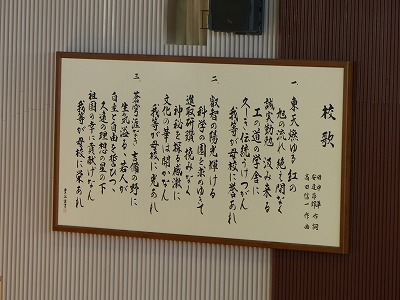 校歌
作詞
高田信一 作曲
一 東天燃ゆる紅の
旭の流れ絶え間なく
誠実勤勉 汲み来る
工の道の学舎に
久しき伝統うけつがん
我等が母校に誉あれ
二 叡智の陽光輝ける
科学の園を求めゆきて
進取研鑽 撓みなく
神秘を探る感激に
文化の華は開かなん
我等が母校に光あれ
三 蒼空涯なき 吉備の野に
生気溢るる 若人が
自主と自由を指しつつ
久遠の理想の星の下
祖国の幸に貢献けなん
我等が母校に栄あれ